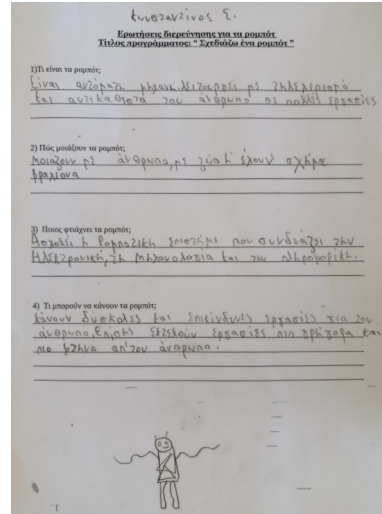 Κωνσταντίνος Σ.
Ερωτήσεις διερεύνησης για τα ρομπότ
Τίτλος προγράμματος: “ Σχεδιάζω ένα ρομπότ ”
1)Τι είναι τα ρομπότ;
Είναι αυτόματη μηχανή λειτουργεί με τηλεχειρισμό
και αντικαθιστά τον άνθρωπο σε πολλές εργασίες
2) Πώς μοιάζουν τα ρομπότ;
Μοιάζουν με άνθρωπο, με ζώα ή έχουν σχήμα
βραχίονα
3) Ποιος φτιάχνει τα ρομπότ;
η Ρομποτική επιστήμη που συνδυάζει την
Ηλεκτρονική, τη Μηχανολογία και την πληροφορική.
4) Τι μπορούν να κάνουν τα ρομπότ;
κάνουν δύσκολες και επικίνδυνες εργασίες για τον
άνθρωπο. Επίσης εκτελούν εργασίες πιο γρήγορα και
πιο φτηνα απ'τον άνθρωπο.